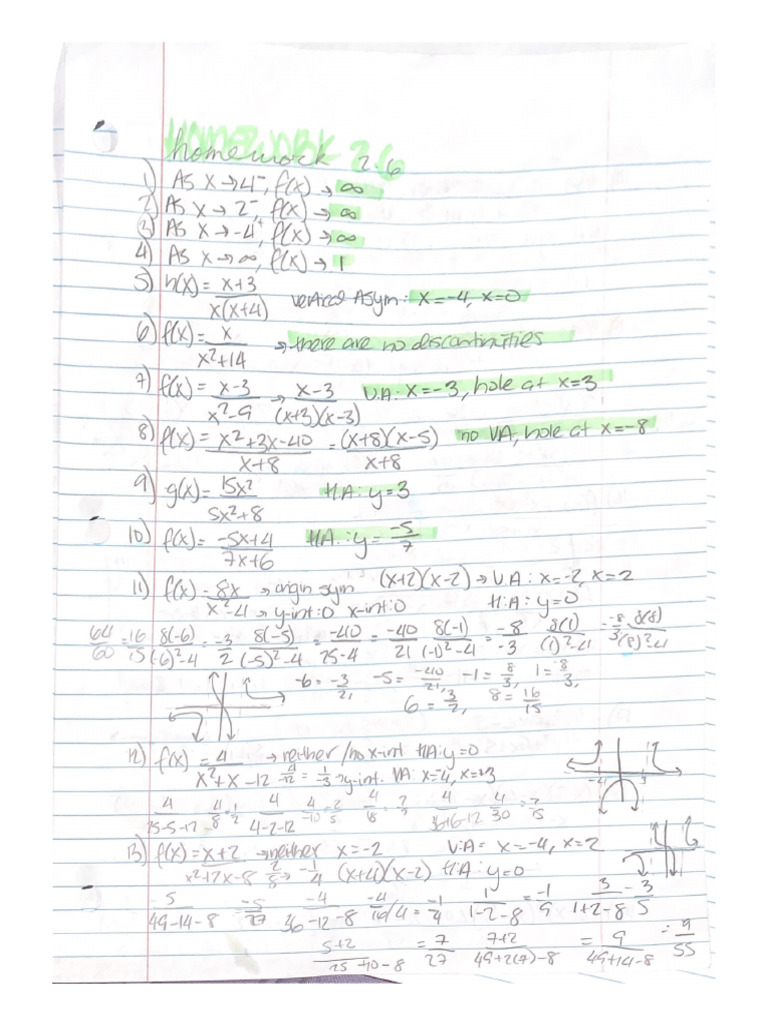 HOMEWORK
homework 2.6
1) As x→4⁻, f(x)→∞
2) As x→2⁻, f(x)→∞
3) As x→-4⁺, f(x)→∞
4) As x→∞, f(x)→1
5) h(x) = x+3 / x(x+4) vertical Asym: x=-4, x=0
6) f(x) = x / x²+14 → there are no discontinuities
7) f(x) = x-3 / x²-9 → x-3 / (x+3)(x-3) V.A: x=-3, hole at x=3
8) f(x) = x²+3x-40 / x+8 = (x+8)(x-5) / x+8 no VA, hole at x=-8
9) g(x) = 15x² / 5x²+8 H.A: y=3
10) f(x) = -5x+4 / 7x+6 H.A.: y = -5/7
11) f(x) = 8x / x²-4 → origin sym (x+2)(x-2) → V.A: x=-2, x=2
→ y-int:0 x-int:0 H.A: y=0
64/60 = 16/15 8(-6) / (-6)²-4 = -3/2 8(-5) / (-5)²-4 = -40 / 25-4 = -40/21 8(-1) / (-1)²-4 = -8/-3 8(1) / (1)²-4 = -8/3 8(8) / (8)²-4
-6 = -3/2, -5 = -40/21, -1 = 8/3, 1 = -8/3,
6 = 3/2, 8 = 16/15
12) f(x) = 4 / x²+x-12 → neither / no x-int HA: y=0
4/-12 = 1/-3 → y-int. VA: x=-4, x=+3
-4 3
4 / 25-5-12 4/8 = 1/2 4 / 4-2-12 4/-10 = 2/5 4/8 4 / 36+6-12 4/30 = 2/15
13) f(x) = x+2 / x²+2x-8 → neither x=-2 V:A = x=-4, x=2
2/8 → -1/4 (x+4)(x-2) H:A: y=0
-5 / 49-14-8 = -5/27 -4 / 36-12-8 -4/16 /4 = -1/4 1 / 1-2-8 = -1/9 3 / 1+2-8 -3/5
5+2 / 25+10-8 = 7/27 7+2 / 49+2(7)-8 = 9 / 49+14-8 = 9/55